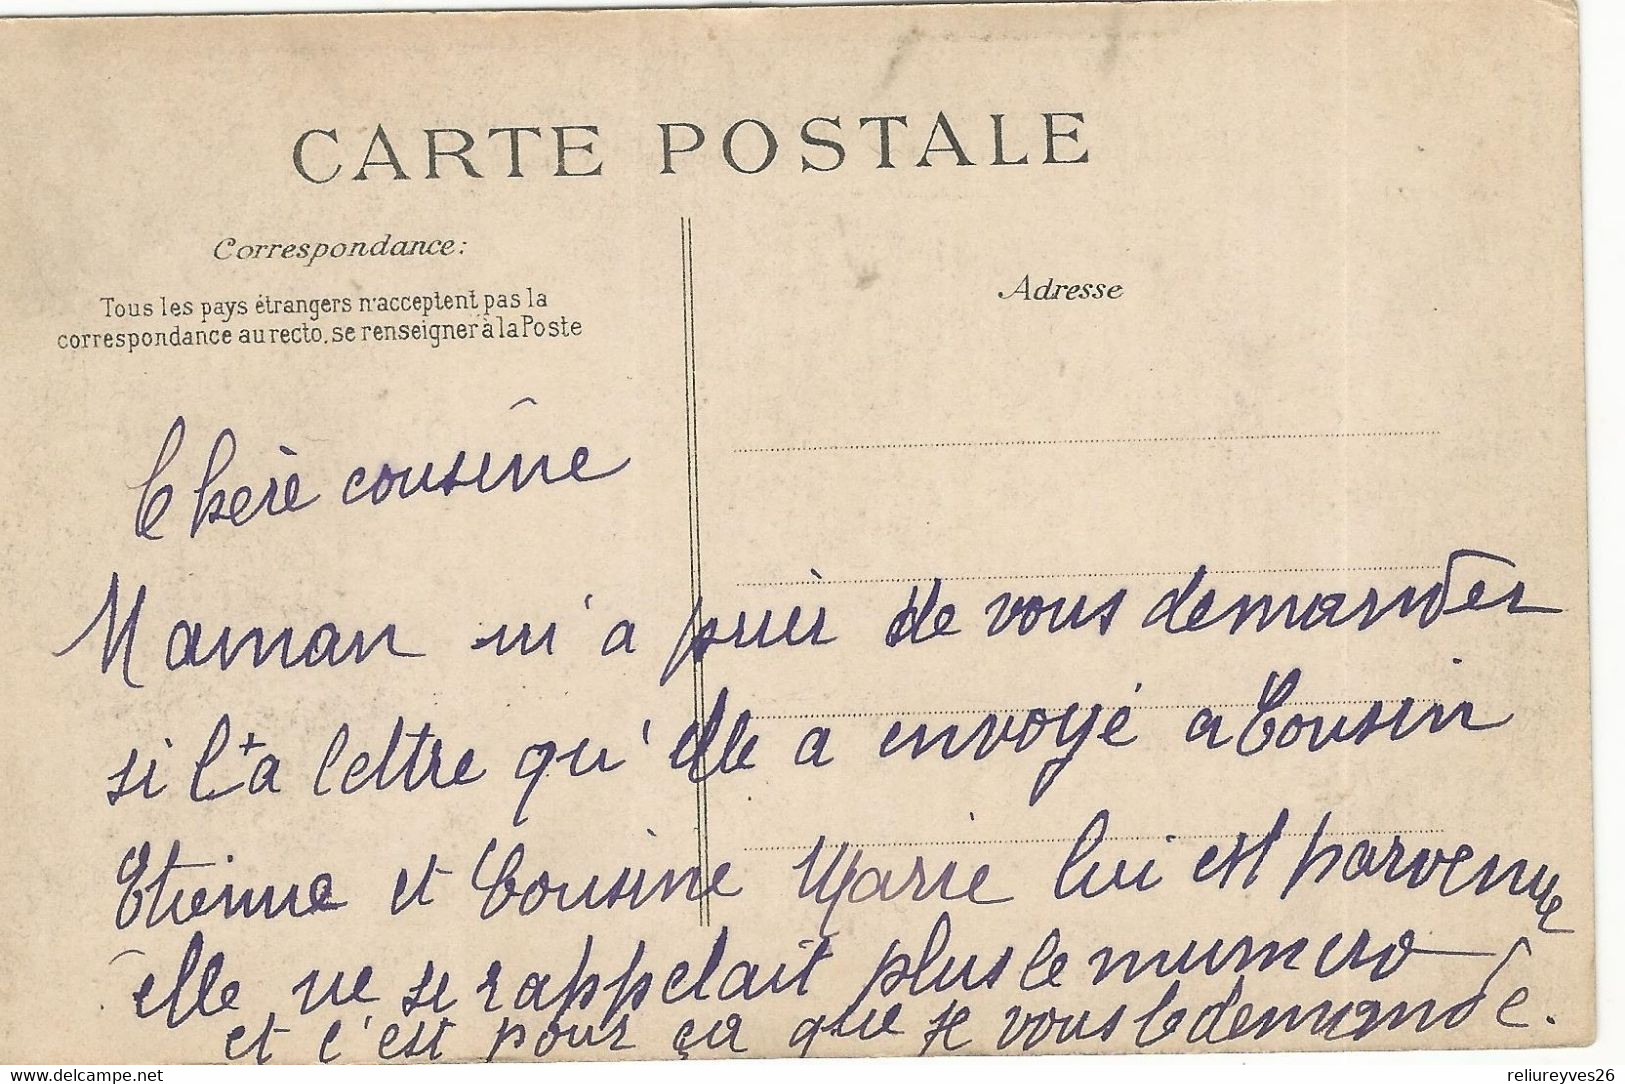 CARTE POSTALE
Correspondance:
Tous les pays étrangers n'acceptent pas la
correspondance au recto, se renseigner à la Poste
Adresse
Chère cousine
Maman m'a prier de vous demander
si la lettre qu'elle a envoyé a Cousin
Etienne et Cousine Marie lui est parvenue
elle ne se rappelait plus le numero
et c'est pour ça que je vous le demande.
www.delcampe.net
reliureyves26